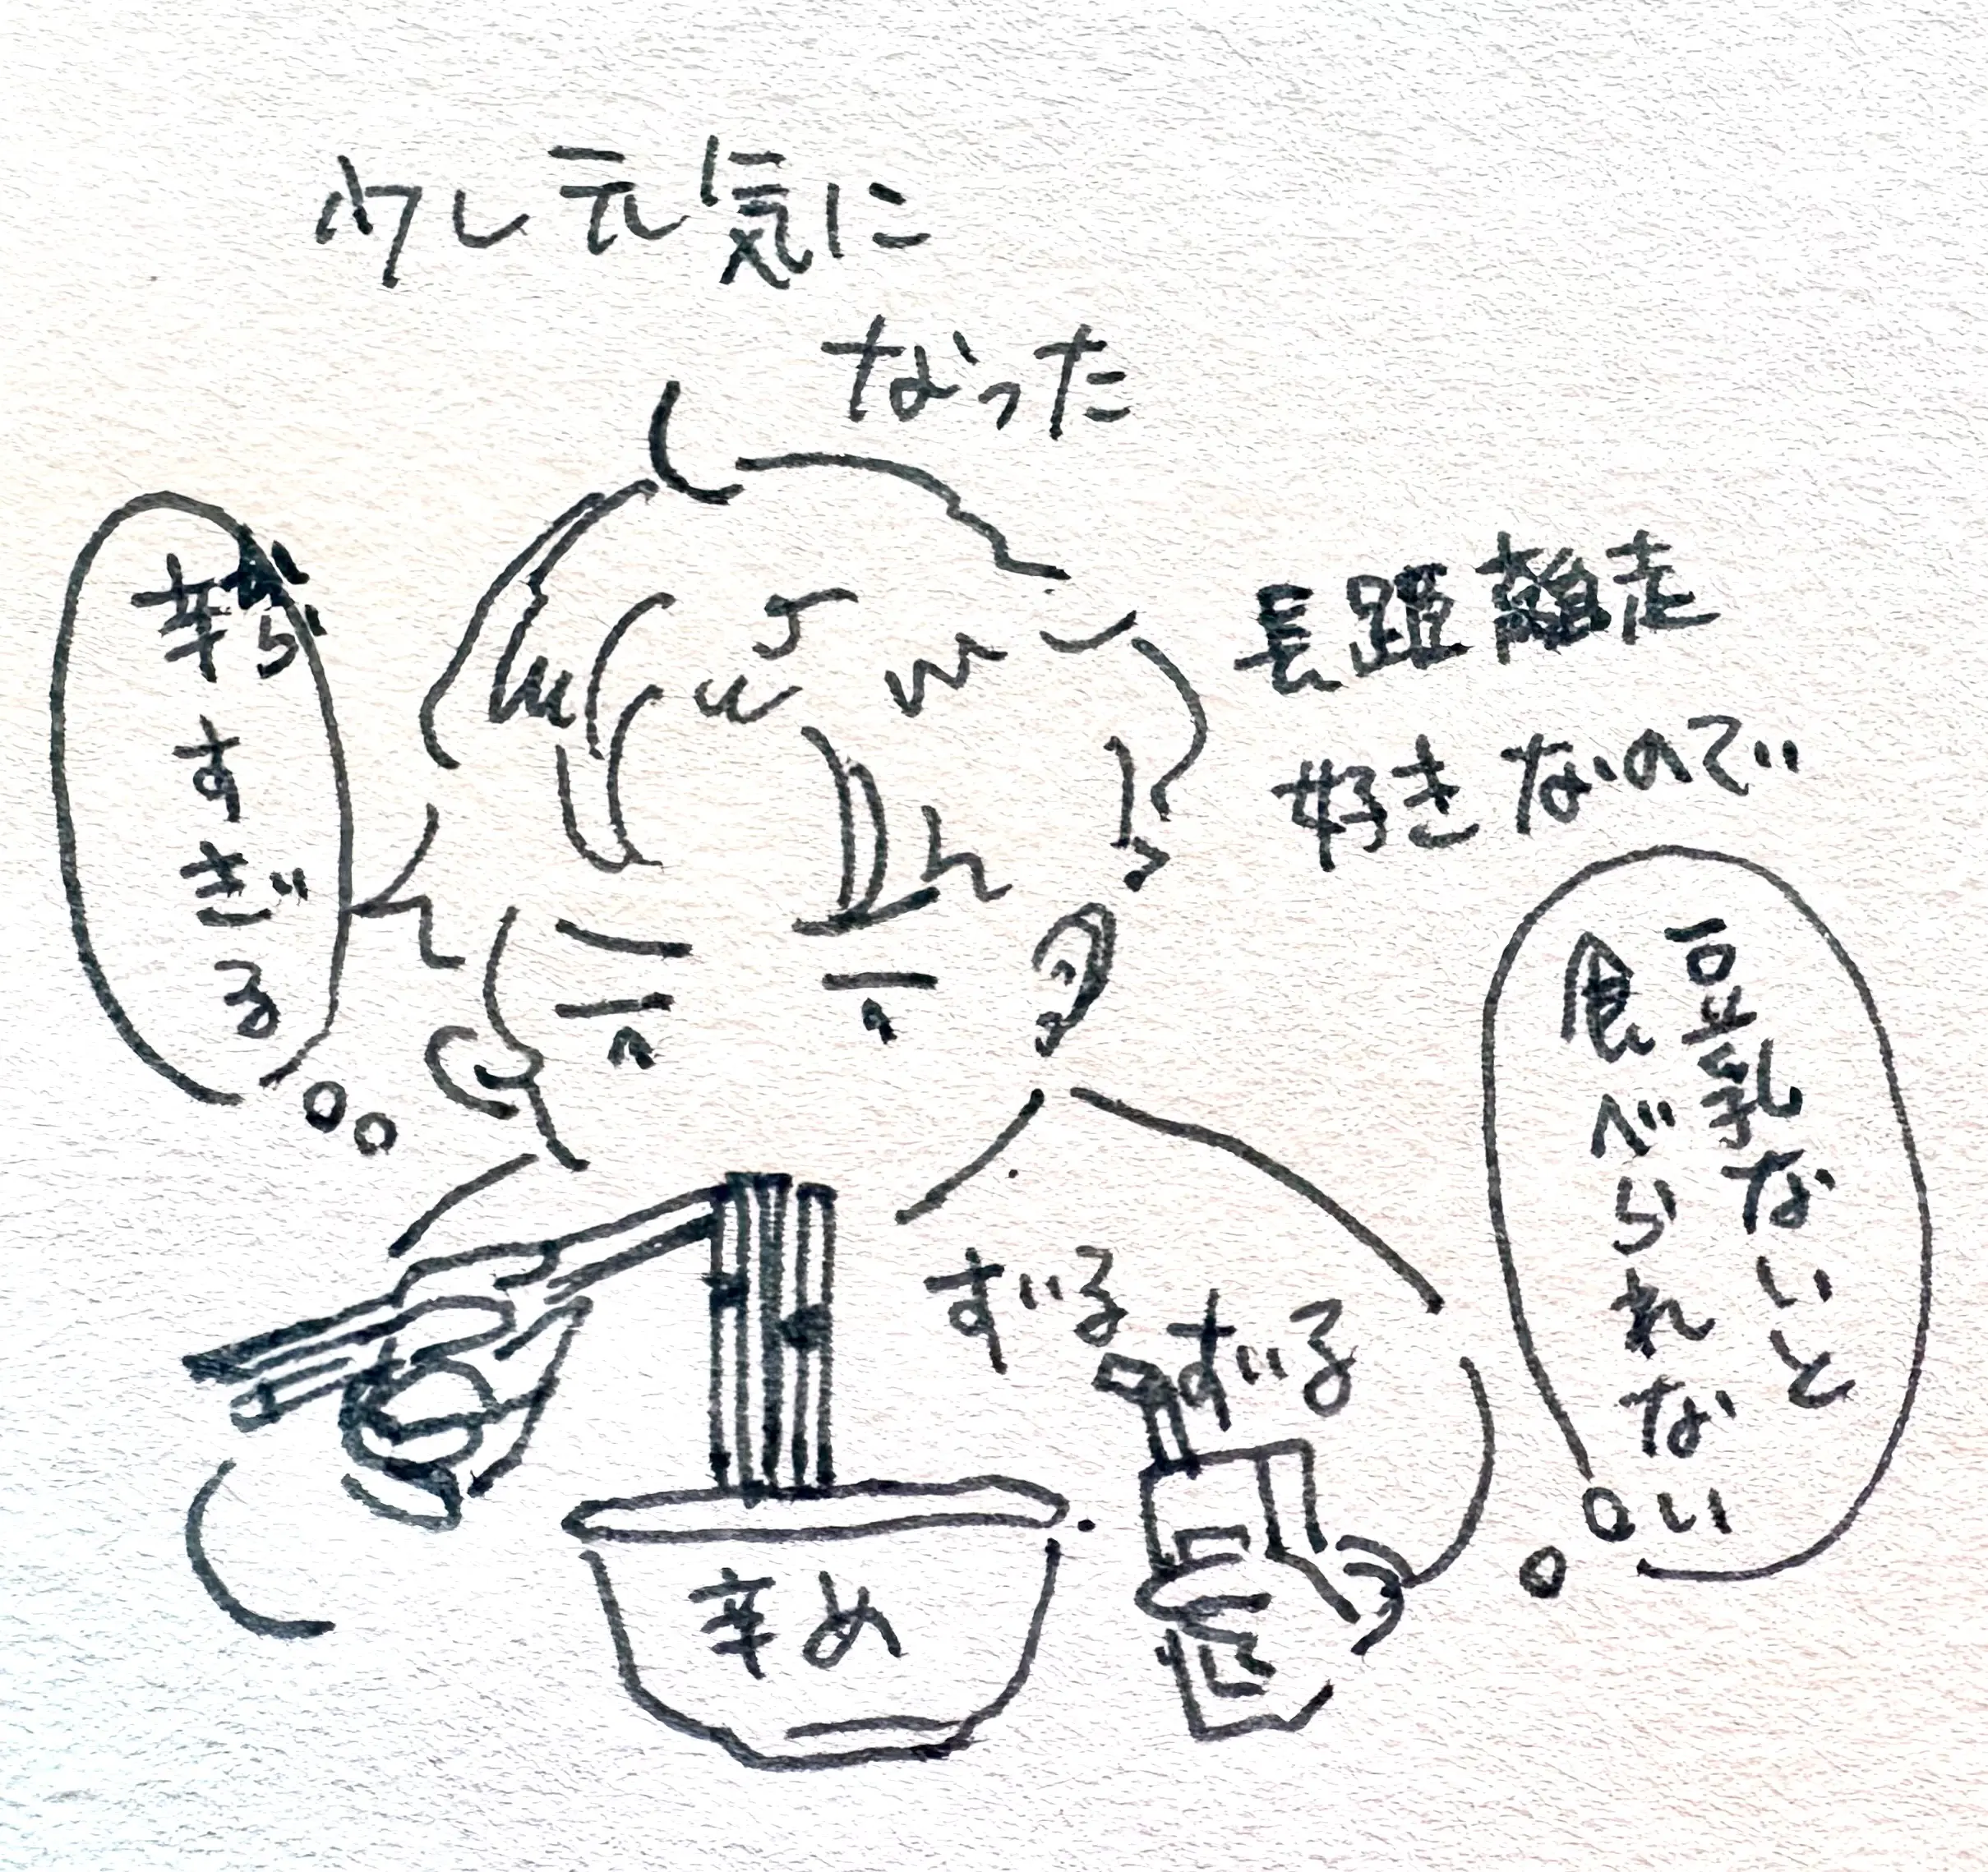 少し元気に
なった
長距離走
好きなので
辛すぎる
豆乳ないと
食べられない
ずる
ずる
辛め